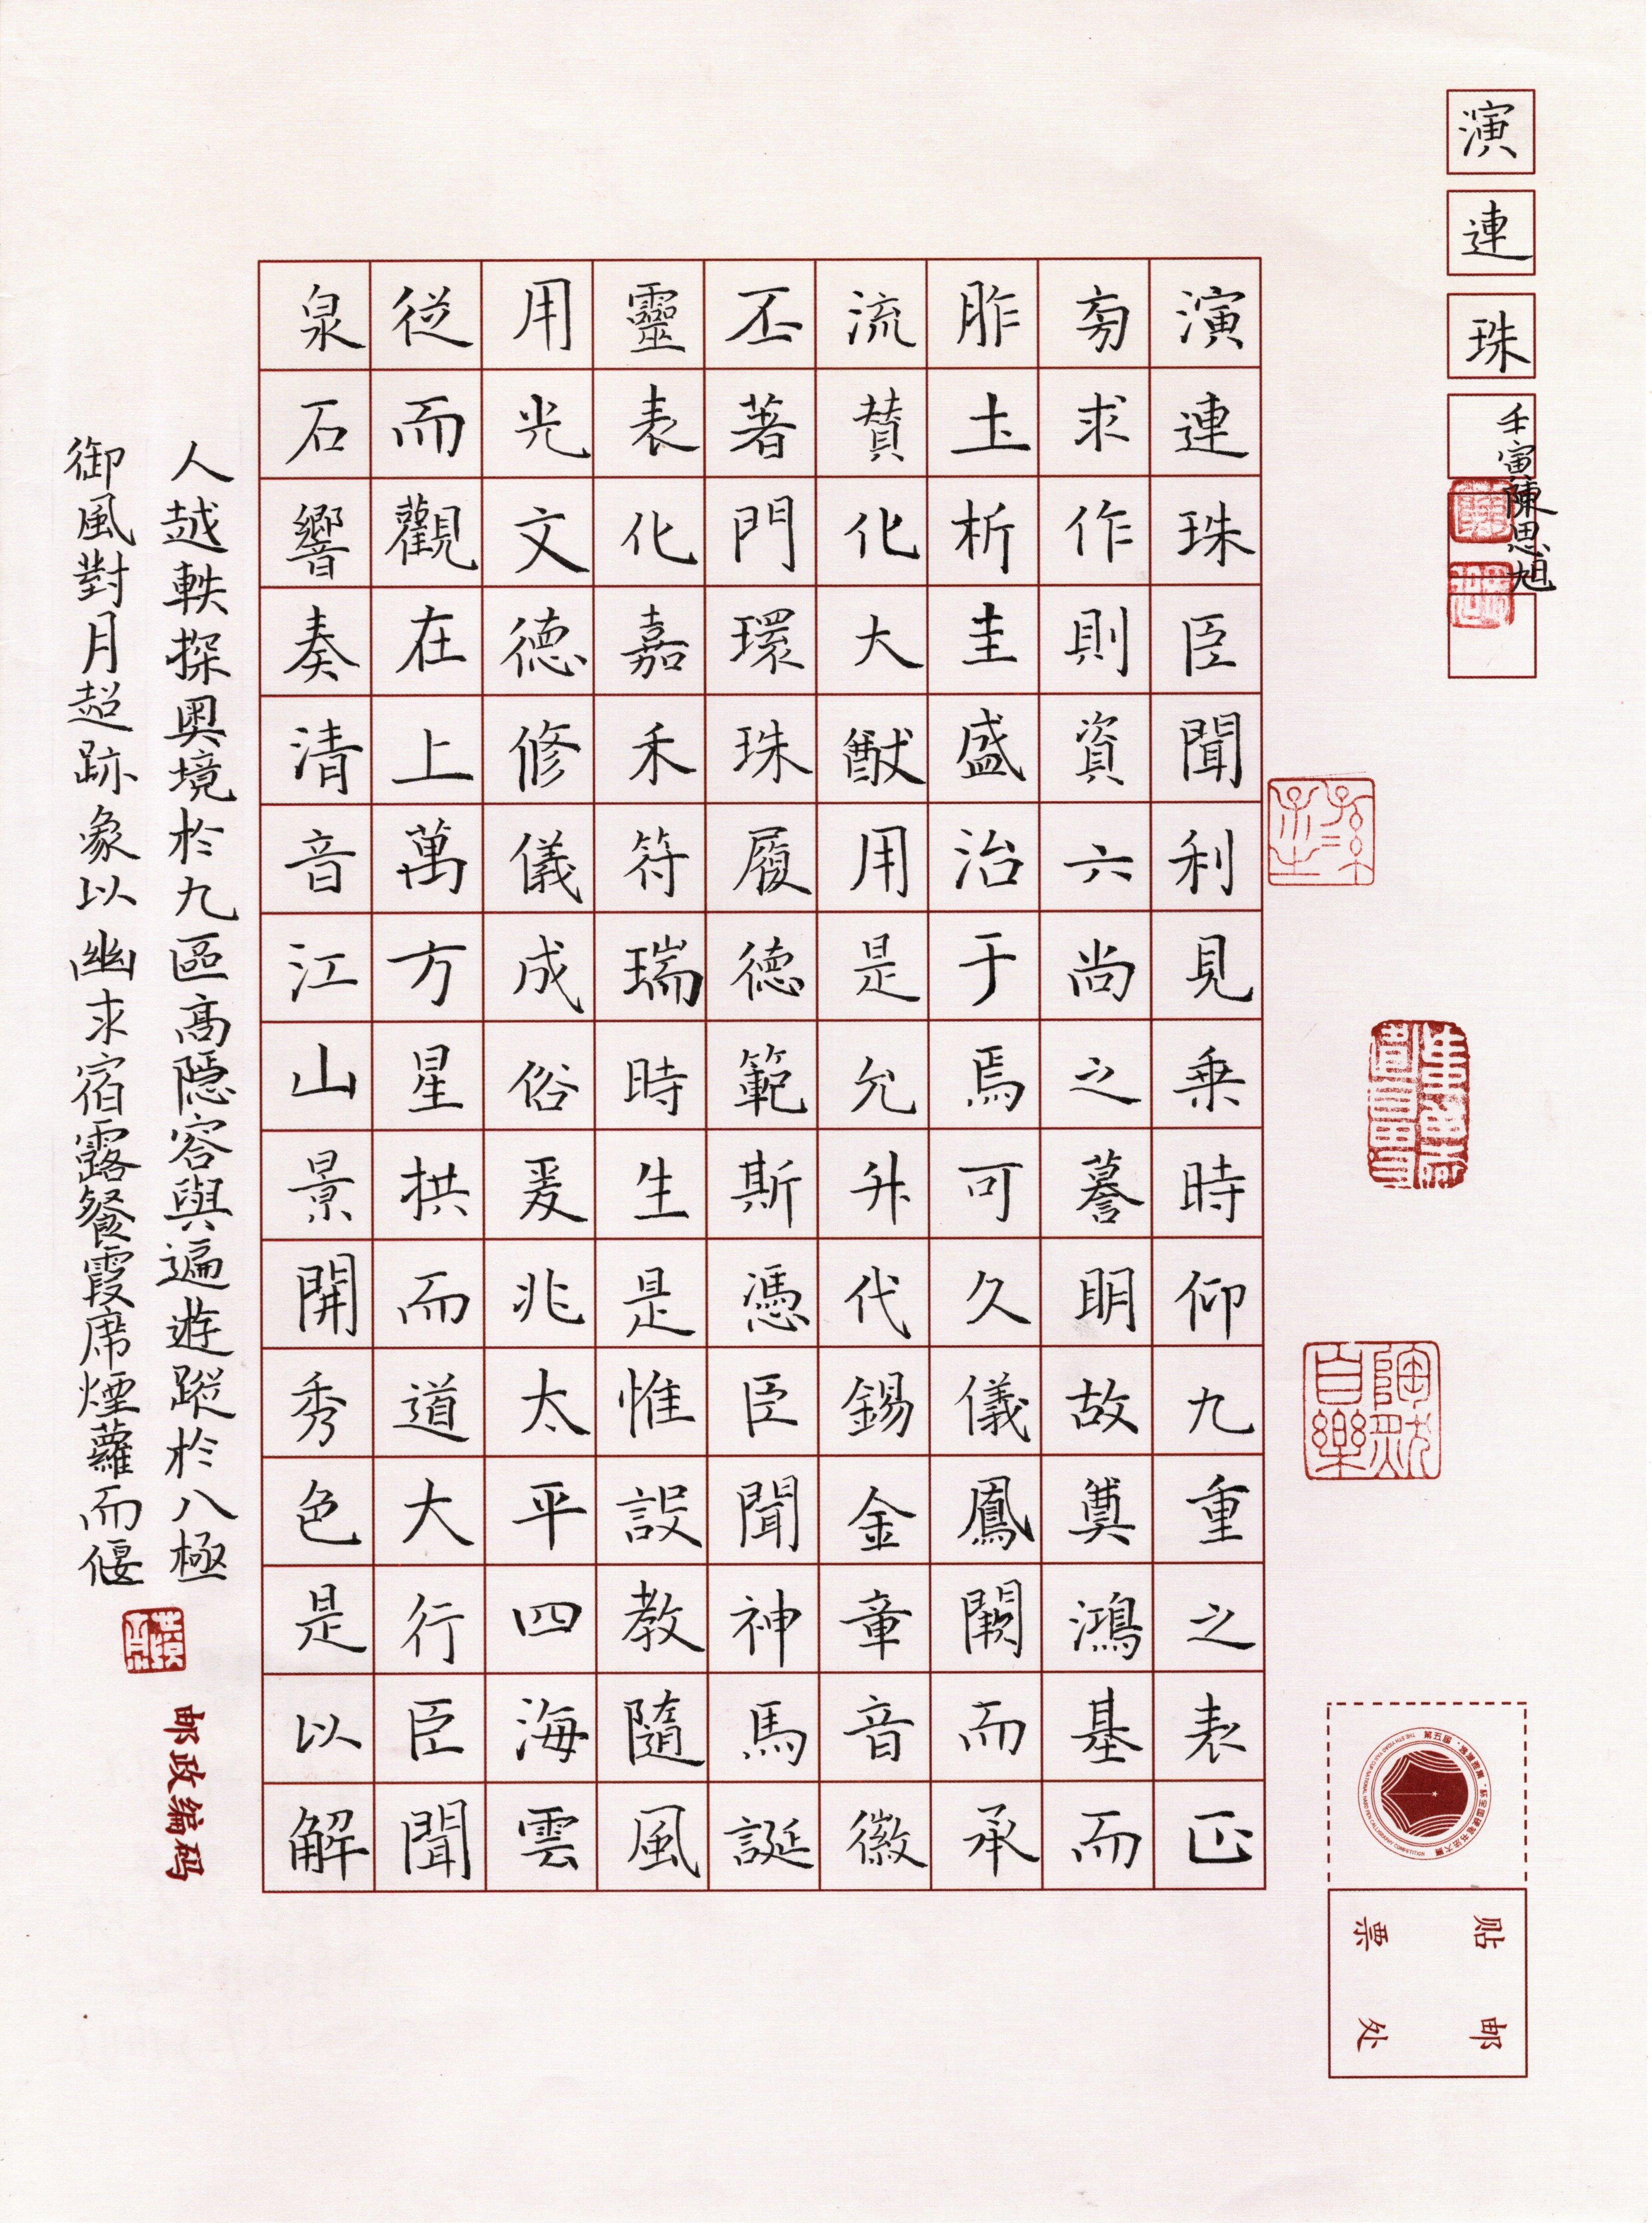 演連珠
壬寅陳思旭
演連珠臣聞利見乗時仰九重之表正
旁求作則資六尚之謩明故奠鴻基而
胙土析圭盛治于焉可久儀鳳闕而承
流賛化大猷用是允升代錫金章音徽
丕著門環珠履德範斯憑臣聞神馬誕
靈表化嘉禾符瑞時生是惟設教隨風
用光文德修儀成俗爰兆太平四海雲
從而觀在上萬方星拱而道大行臣聞
泉石響奏清音江山景開秀色是以解
人越軼探奥境於九區高隱容與遍遊蹤於八極
御風對月超跡象以幽求宿露餐霞席煙蘿而偃
邮政编码
贴邮
票处